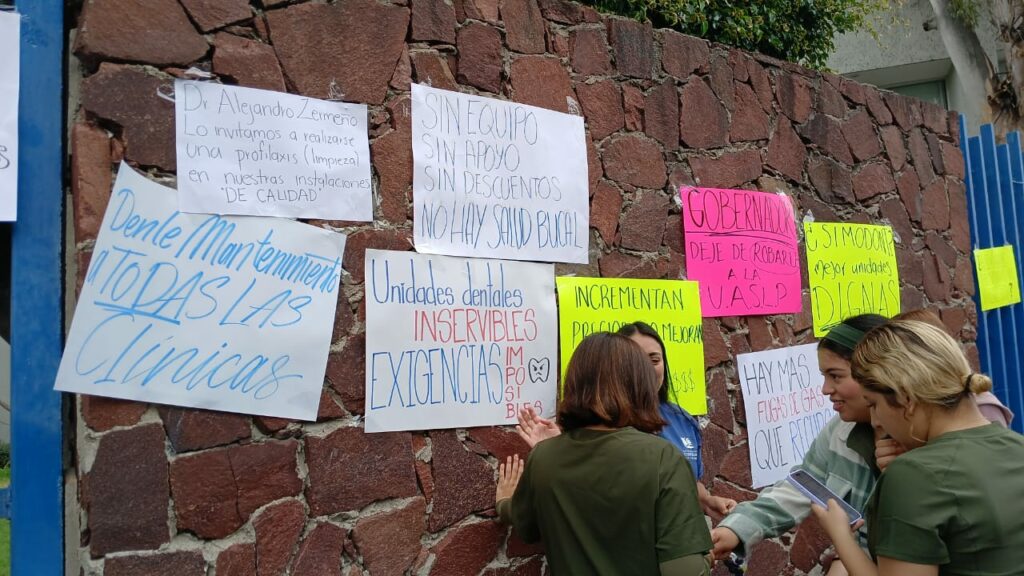 Dr Alejandro Zermeño
Lo invitamos a realizarse
una profilaxis (limpieza)
en nuestras instalaciones
"DE CALIDAD"
SIN EQUIPO
SIN APOYO
SIN DESCUENTOS
NO HAY SALUD BUCAL
Denle Mantenimiento
a TODAS LAS
Clínicas
Unidades dentales
INSERVIBLES
EXIGENCIAS
IMPOSIB
INCREMENTAN
MEJORAN
$$$
GOBERNADOR
DEJE DE ROBARLE
A LA
UASLP
¿SI MODOR?
mejor unidades
DIGNAS
HAY MAS
FUGAS DE GAS
QUE